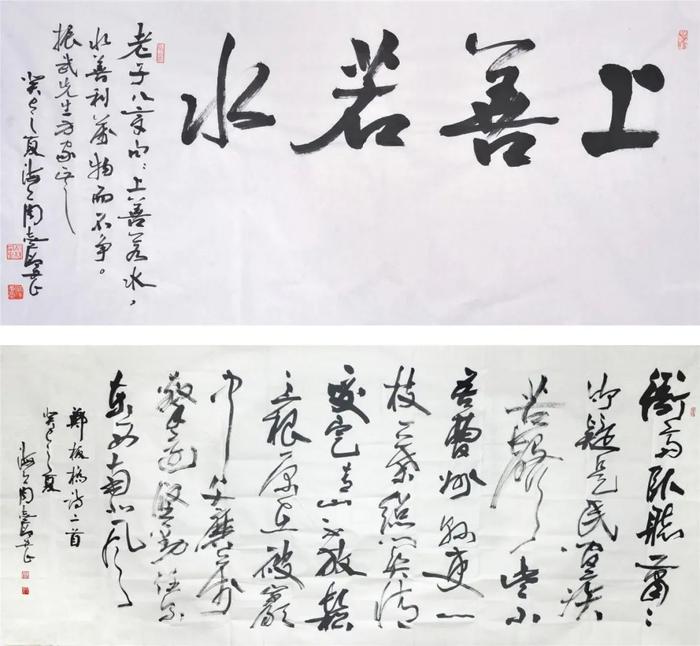 上善若水
老子八章曰:上善若水,
水善利萬物而不争。
振武先生方家正之
癸巳之夏海上周志高
衙斋卧聽蕭〻
竹疑是民間疾
苦聲些小
吾曹州縣吏一
枝一葉總關情
咬定青山不放鬆
立根原在破巖
中千磨萬
擊還堅勁任爾
東西南北風
鄭板橋詩二首
癸巳之夏
海上周志高